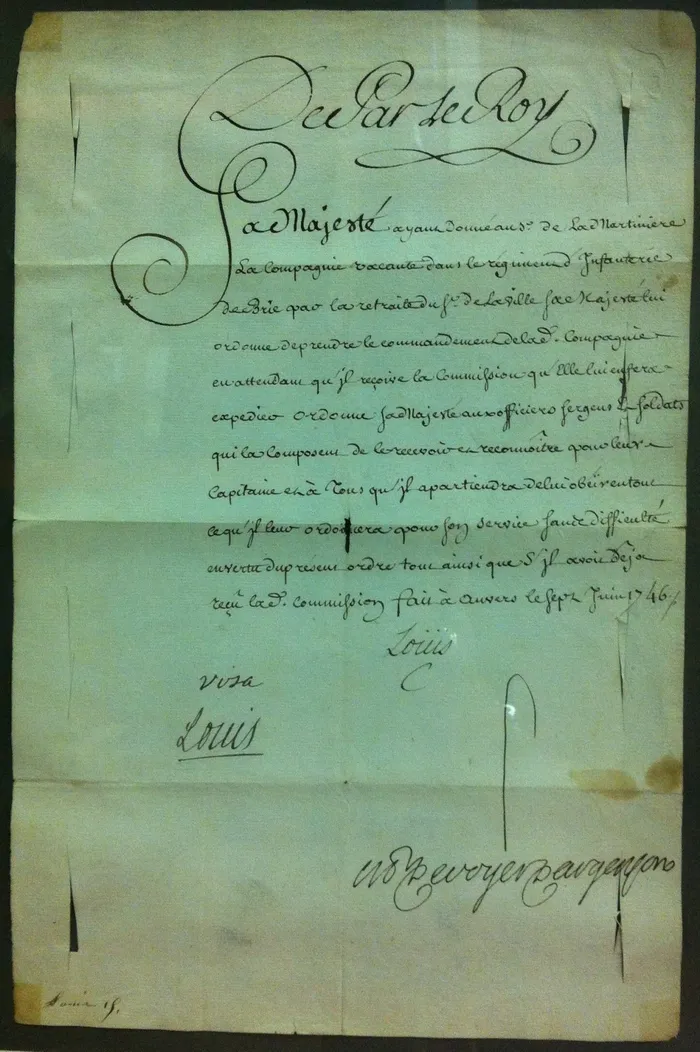 De Par Le Roy
Sa Majesté ayant donné au Sr. de La Martiniere
La Compagnie vacante dans le regiment d'Infanterie
de Brie par la retraite du Sr. de Laville Sa Majesté lui
ordonne de prendre le commandement de lad. Compagnie
en attendant qu'jl reçoive la Commission qu'Elle lui en fera
expedier ordonne Sa Majesté aux officiers sergens & soldats
qui la composent de le recevoir et reconnôitre pour leur
Capitaine et à Tous qu'jl apartiendra de lui obeïr en tout
ce qu'jl leur ordonnera pour son service sans difficulté
en vertu du present ordre tout ainsi que S'jl avoit Déja
reçu lad. commission fait à Anvers le sept Juin 1746
Loüis
visa
Louis
De voyer Dargenson
Louis 15.